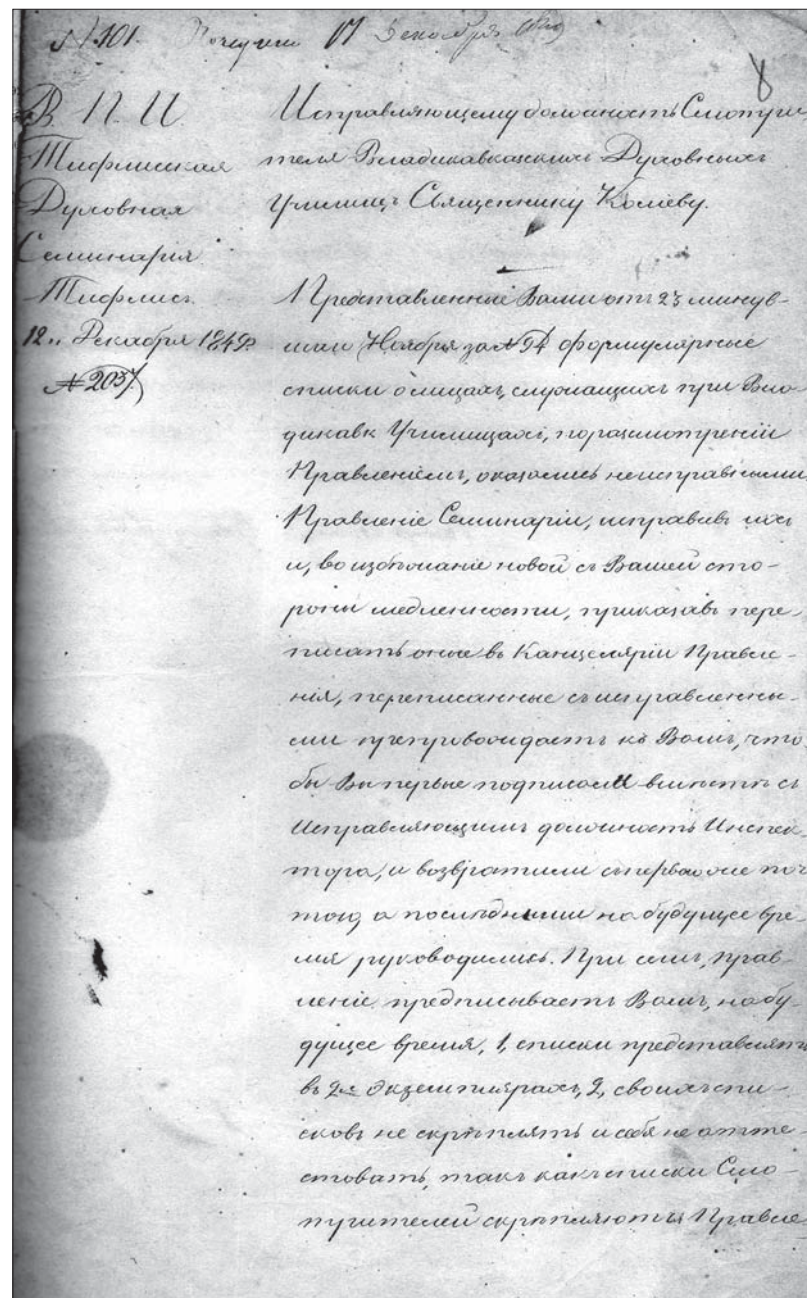 № 101. Получено 17 Декабря
8
В. П. И.
Тифлисская
Духовная
Семинарія
Тифлисъ.
12„ Декабря 1849
№ 2037
Исправляющему должность Смотри-
теля Владикавказскихъ Духовныхъ
Училищъ Священнику Коліеву.
Представленные Вами отъ 23 минув-
шаго Ноября за № 94 формулярные
списки о лицахъ, служащихъ при Вла-
дикавк Училищахъ, по разсмотреніи
Правленіемъ, оказались неисправными.
Правленіе Семинаріи, исправивъ ихъ
и, во избѣжаніе новой съ Вашей сто-
роны медленности, приказавъ пере-
писать оные въ Канцеляріи Правле-
нія, переписанные съ исправленны-
ми препровождаетъ къ Вамъ, что-
бы Вы первые подписали вмѣстѣ съ
Исправляющимъ должность Инспек-
тора, и возвратили съ первою же поч-
тою, а послѣдними на будущее вре-
мя руководились. При семъ, прав-
леніе предписываетъ Вамъ, на бу-
дущее время, 1, списки представлять
въ 2-хъ экземплярахъ, 2, своихъ спи-
сковъ не скрѣплять и себя не атте-
стовать, такъ какъ списки Смо-
трителей скрѣпляются Правле